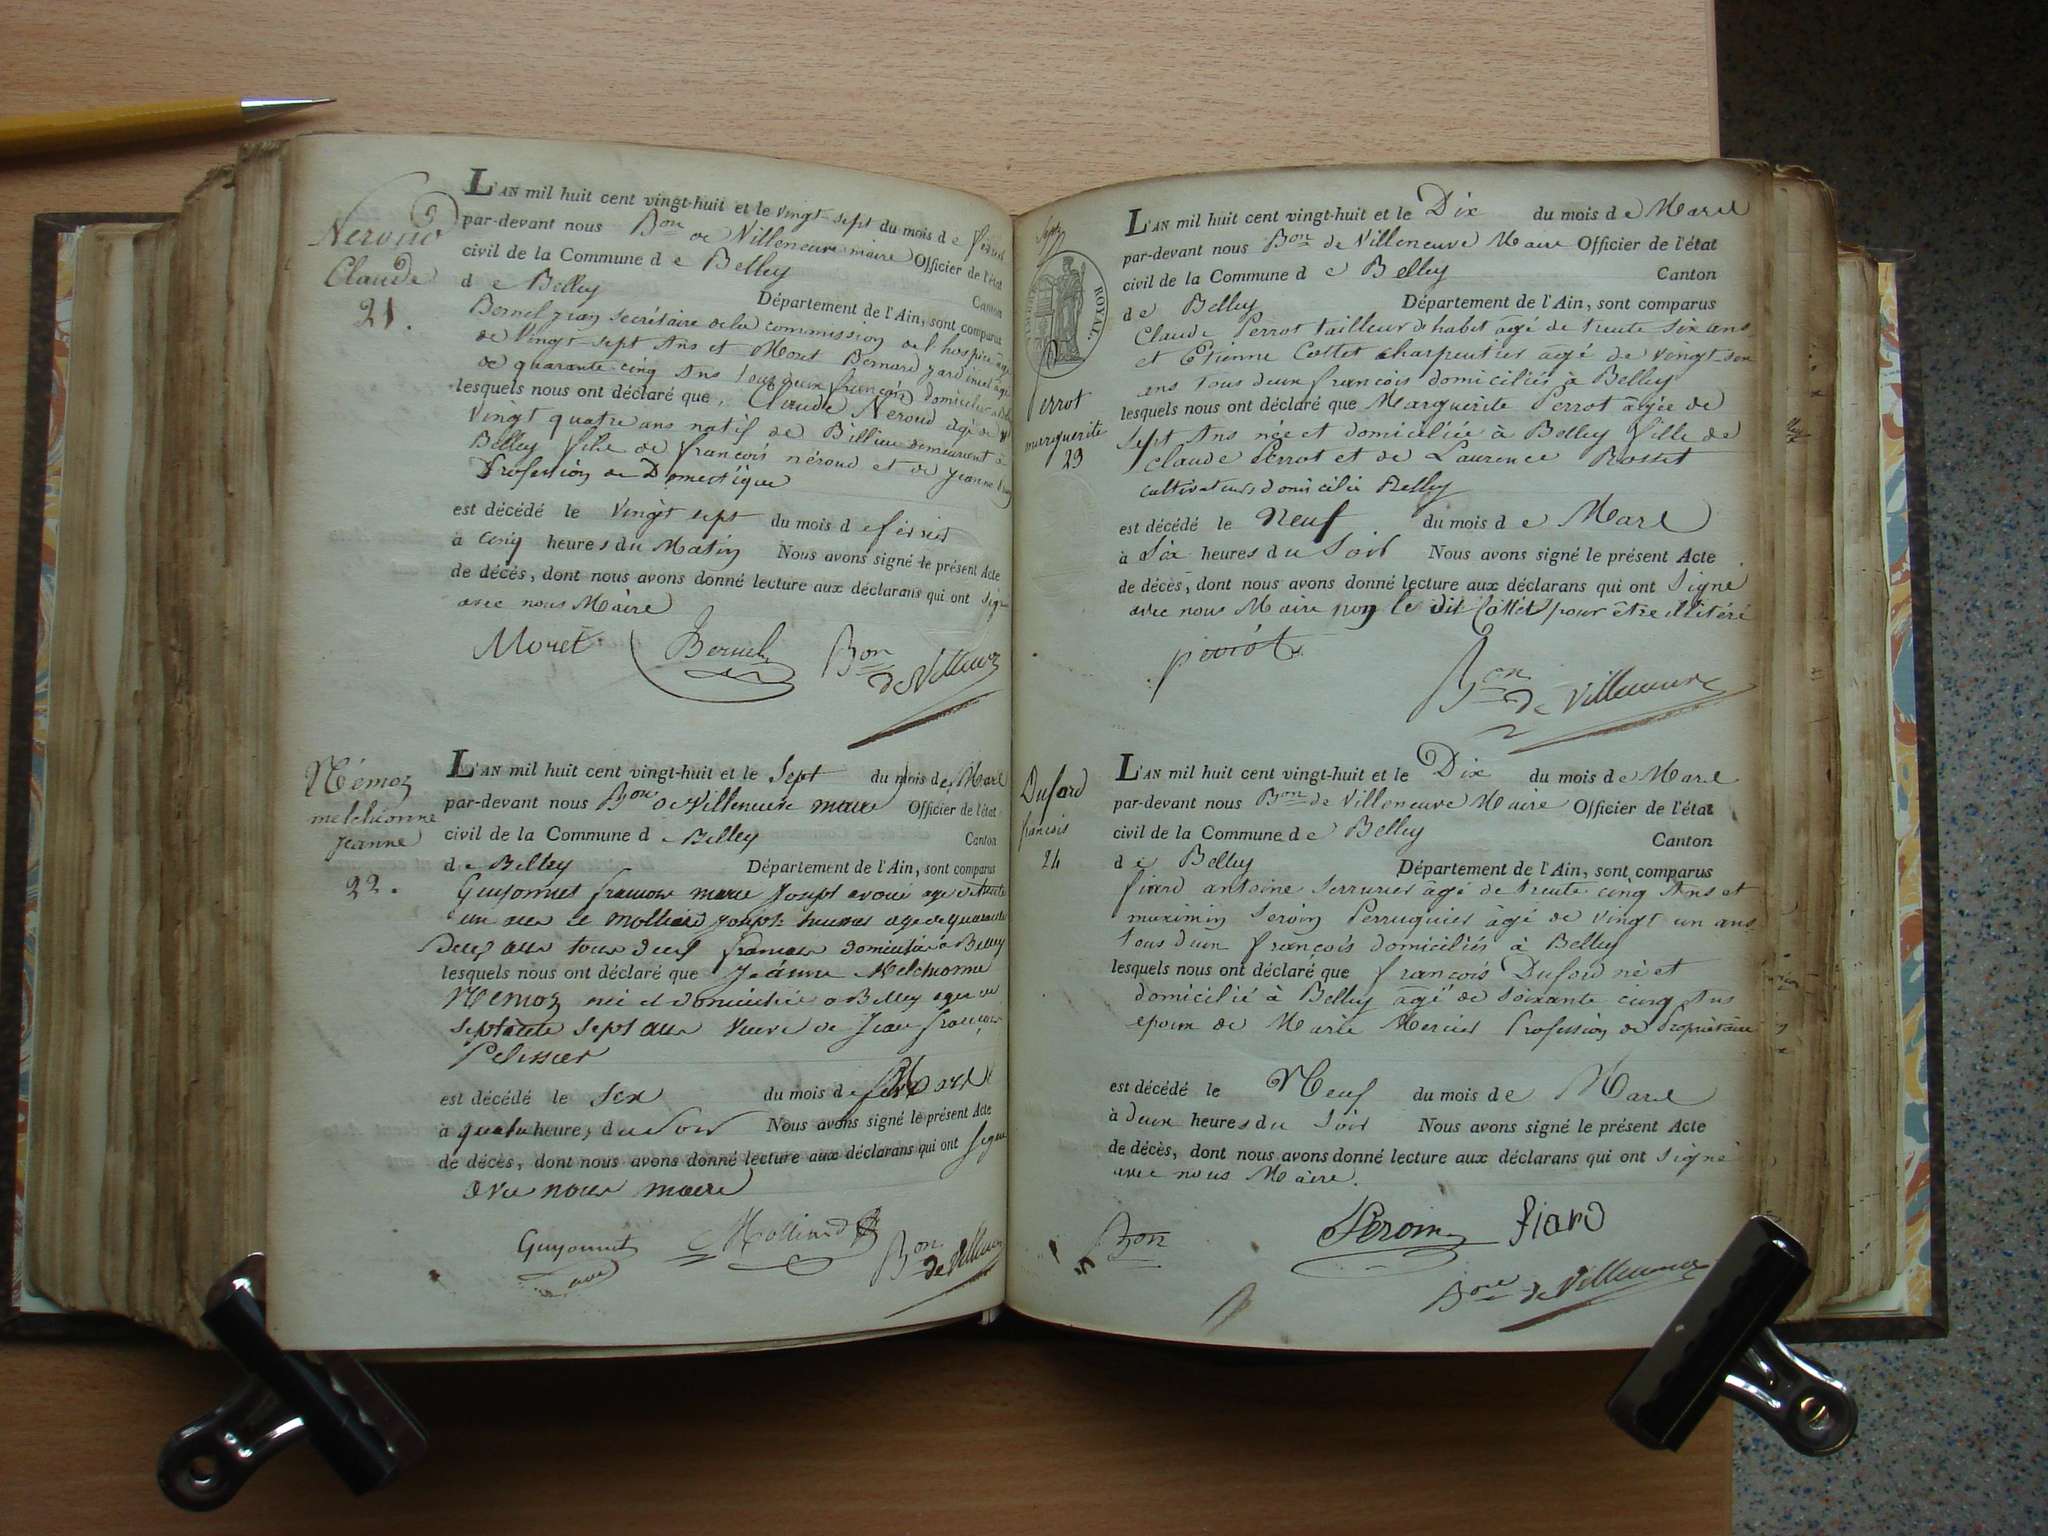 Neroud
Claude
21.
L'AN mil huit cent vingt-huit et le vingt sept du mois de fevrier
par-devant nous Bon de Villeneuve maire Officier de l'état
civil de la Commune de Belley
Canton
de Belley Département de l'Ain, sont comparus
Bernel jean secrétaire de la commission de l'hospice âgé
de Vingt-sept Ans et Moret Bernard jardinier âgé
de quarante cinq Ans tous deux françois domiciliés à
lesquels nous ont déclaré que, Claude Neroud âgé de
Vingt quatre ans natif de Billieu demeurent à
Belley fils de françois néroud et de jeanne
Profession de Domestique
est décédé le Vingt sept du mois de février
à cinq heures du Matin Nous avons signé le présent Acte
de décès, dont nous avons donné lecture aux déclarans qui ont signé
avec nous Maire
Moret Bernel Bon
de Villeneuve
Némoz
melchionne
Jeanne
22.
L'AN mil huit cent vingt-huit et le Sept du mois de Mars
par-devant nous Bon de Villeneuve maire Officier de l'état
civil de la Commune de Belley
Canton
de Belley Département de l'Ain, sont comparus
Guyonnet francois marie Joseph avoué age de trente
un ans et Molliard joseph age de quarante
ans tous deux francois domiciliés a Belley
lesquels nous ont déclaré que Jeanne Melchionne
Nemoz née et domiciliée a Belley agee de
septante sept ans Veuve de Jean françois
Pelissier
est décédé le Six du mois de Mars
à quatre heures du Soir Nous avons signé le présent Acte
de décès, dont nous avons donné lecture aux déclarans qui ont signé
avec nous maire
Guyonnet Molliard Bon
avoué de Villeneuve
Sept
ROYAL.
Perrot
marguerite
23
L'AN mil huit cent vingt-huit et le Dix du mois de Mars
par-devant nous Bon de Villeneuve Maire Officier de l'état
civil de la Commune de Belley Canton
de Belley Département de l'Ain, sont comparus
Claude Perrot tailleur d'habit âgé de trente six ans
et Etienne Cottet charpentier âgé de vingt-six
ans tous deux françois domiciliés à Belley
lesquels nous ont déclaré que Marguerite Perrot âgée de
sept Ans née et domiciliée à Belley fille de
Claude Perrot et de Laurence Rostet
cultivateurs domicilié Belley
est décédé le Neuf du mois de Mars
à Six heures du Soir Nous avons signé le présent Acte
de décès, dont nous avons donné lecture aux déclarans qui ont signé
avec nous Maire non le dit Cottet pour être illitéré
perrot
Bon
de Villeneuve
Duford
francois
24
L'AN mil huit cent vingt-huit et le Dix du mois de Mars
par-devant nous Bon de Villeneuve Maire Officier de l'état
civil de la Commune de Belley Canton
de Belley Département de l'Ain, sont comparus
fiard antoine Serrurier âgé de trente cinq Ans et
maximin Peroin Perruquier âgé de vingt un ans
tous deux françois domiciliés à Belley
lesquels nous ont déclaré que françois Duford né et
domicilié à Belley âgé de soixante cinq Ans
epoux de Marie Mercier Profession de Propriétaire
est décédé le Neuf du mois de Mars
à deux heures du Soir Nous avons signé le présent Acte
de décès, dont nous avons donné lecture aux déclarans qui ont signé
avec nous Maire.
Bon Peroin fiard
Bon de Villeneuve